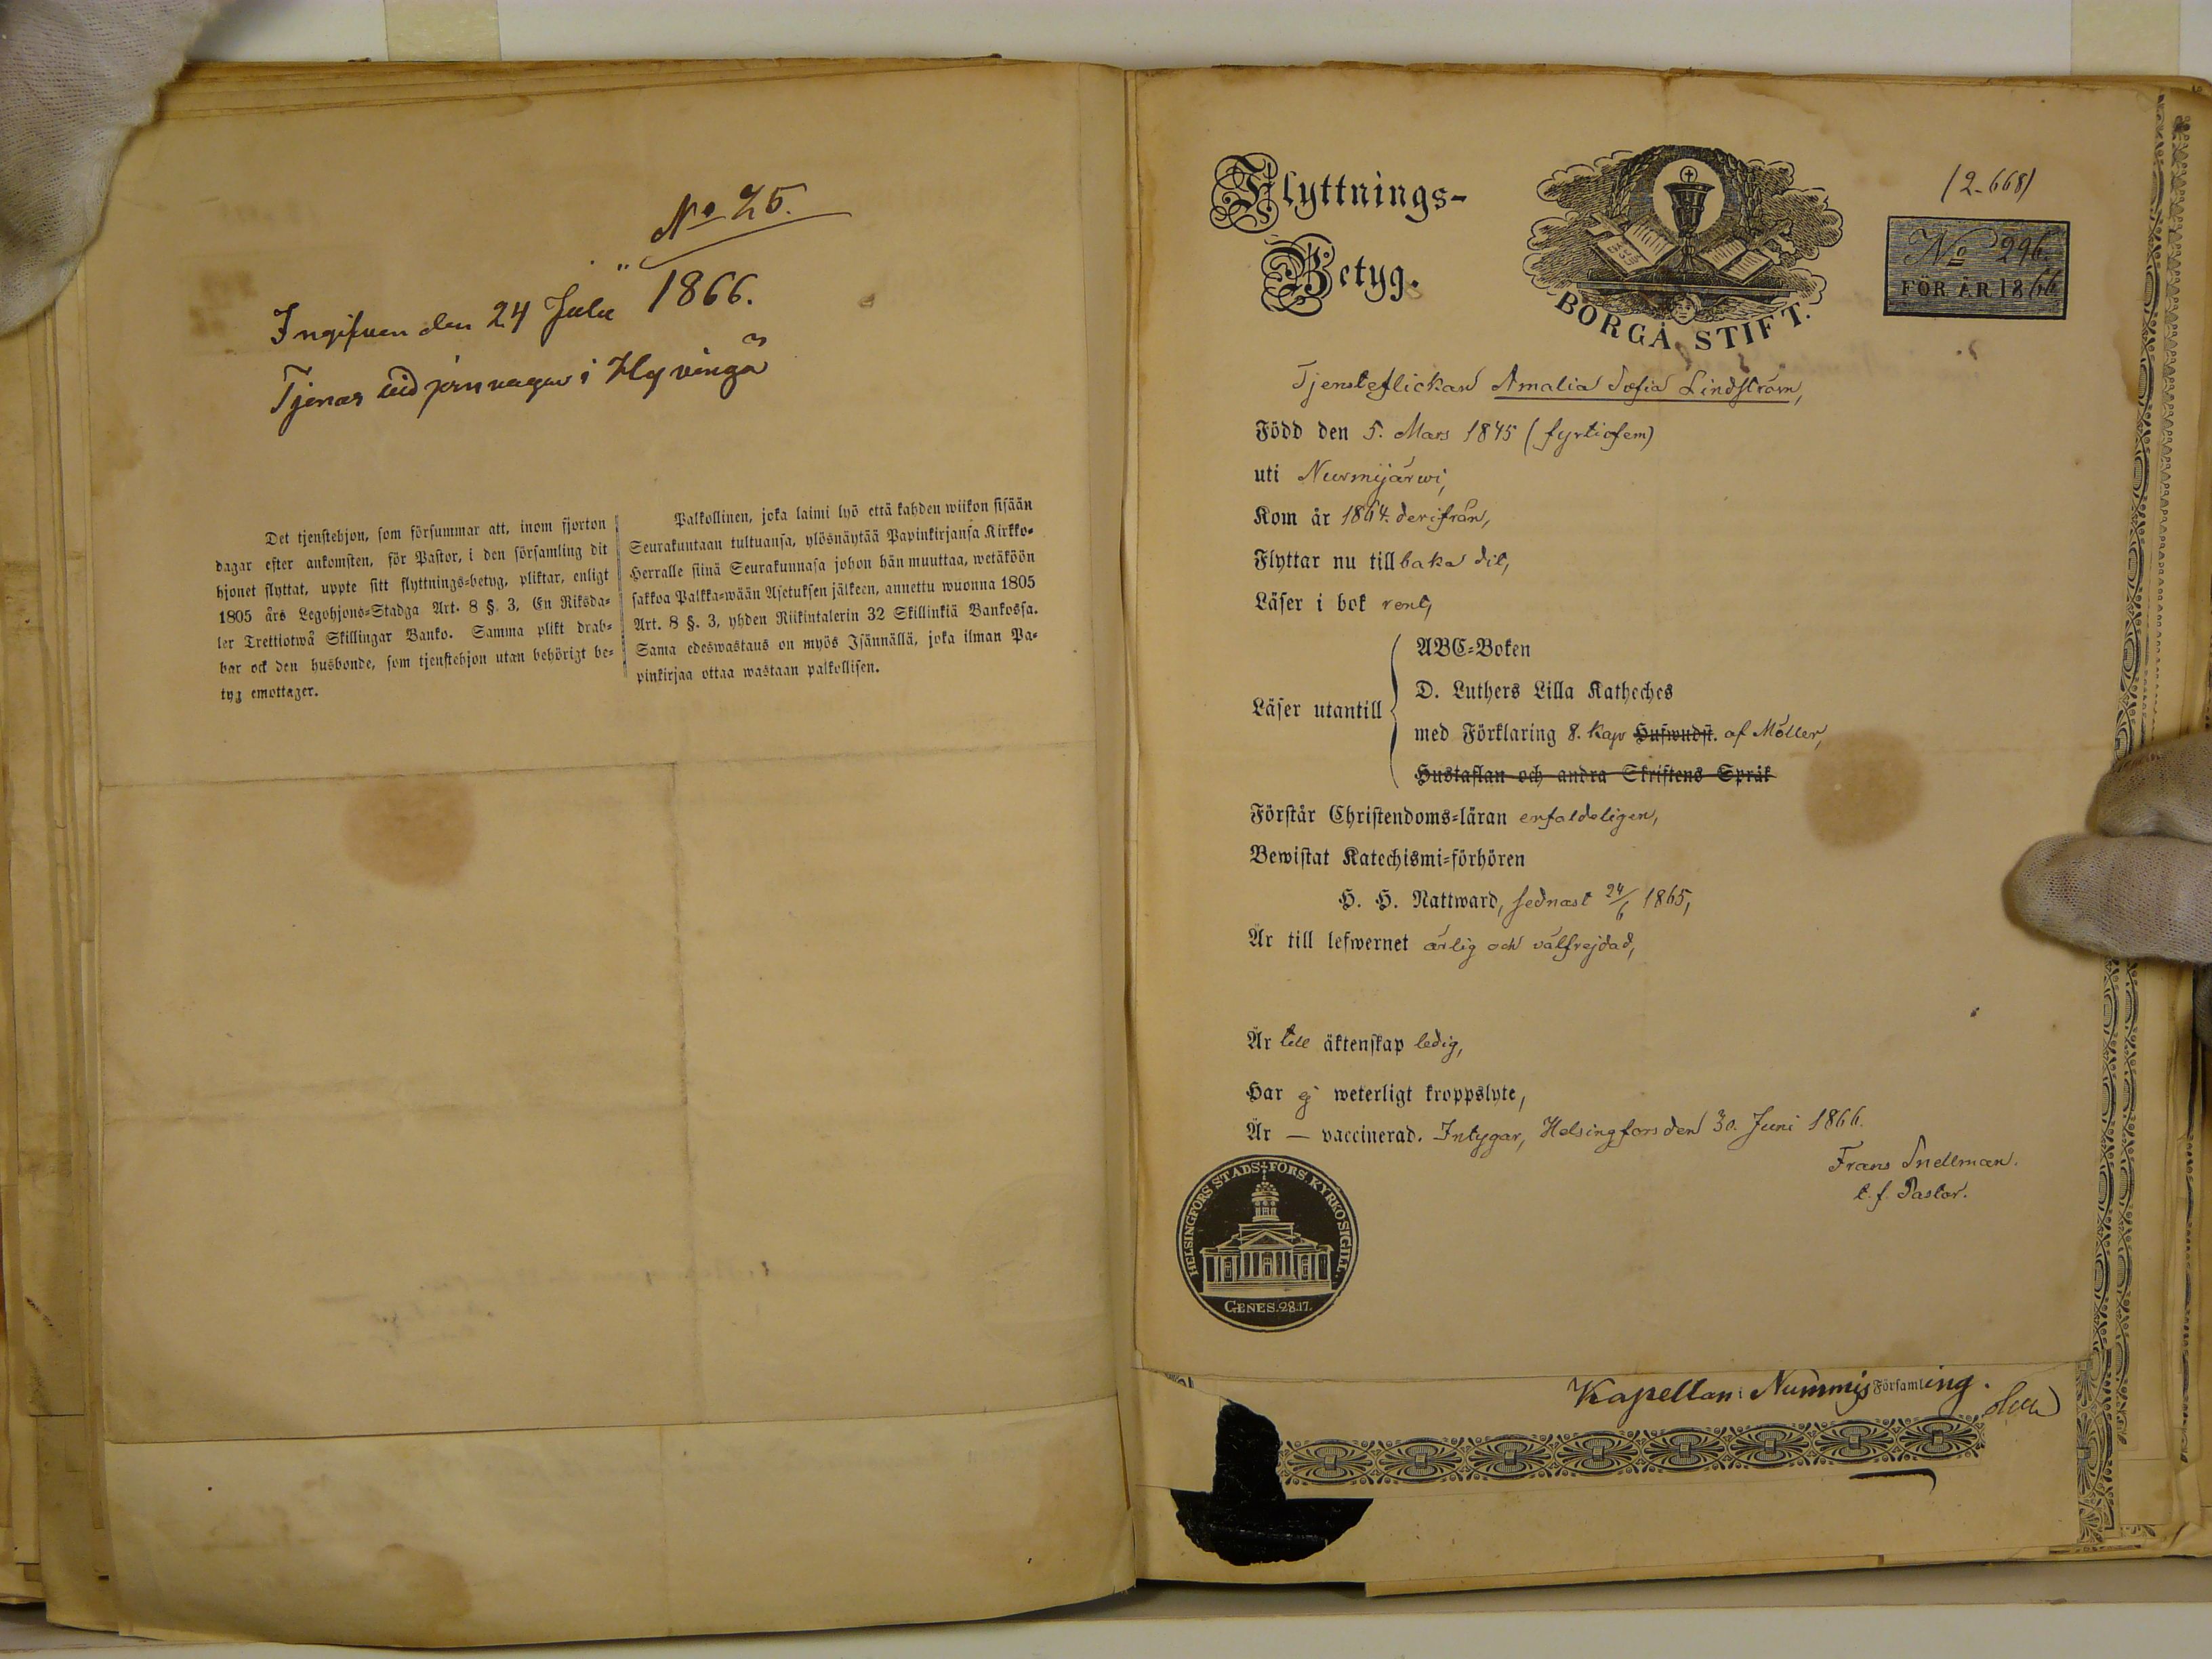 No 25.
Ingifven den 24 Juli 1866.
Tjenar vid jernvägen i Hyvingå
Det tjenstehjon, som försummar att, inom fjorton
dagar efter ankomsten, för Pastor, i den församling dit
hjonet flyttat, uppte sitt flyttnings-betyg, pliktar, enligt
1805 års Legohjons-Stadga Art. 8 §. 3, En Riksda-
ler Trettiotwå Skillingar Banko. Samma plikt drab-
bar ock den husbonde, som tjenstehjon utan behörigt be-
tyg emottager.
Palkollinen, joka laimi lyö että kahden wiikon sisään
Seurakuntaan tultuansa, ylösnäytää Papinkirjansa Kirkko-
Herralle siinä Seurakunnasa johon hän muuttaa, wetäköön
sakkoa Palkka-wään Asetuksen jälkeen, annettu wuonna 1805
Art. 8 §. 3, yhden Riikintalerin 32 Skillinkiä Bankossa.
Sama edeswastaus on myös Isännällä, joka ilman Pa-
pinkirjaa ottaa wastaan palkollisen.
Flyttnings-
Betyg.
BORGÅ STIFT.
(2-668)
No 296.
FÖR ÅR 1866
Tjensteflickan Amalia Sofia Lindström,
Född den 5. Mars 1845 (fyrtiofem)
uti Nurmijärwi,
Kom år 1864. derifrån,
Flyttar nu tillbaka dit,
Läser i bok rent,
Läser utantill
ABC-Boken
D. Luthers Lilla Katheches
med Förklaring 8. Kap Huswudst. af Möller,
Hustaflan och andra Skriftens Språk
Förstår Christendoms-läran enfaldeligen,
Bewistat Katechismi-förhören
H. H. Nattward, sednast 24/6 1865,
Är till lefwernet ärlig och välfrejdad,
Är till äktenskap ledig,
Har ej weterligt kroppslyte,
Är — vaccinerad. Intygar, Helsingfors den 30. Juni 1866.
Frans Snellman.
t. f. Pastor.
HELSINGFORS STADS FÖRS. KYRKOSIGILL.
GENES. 28.17.
Kapellan i Nummis Församling.